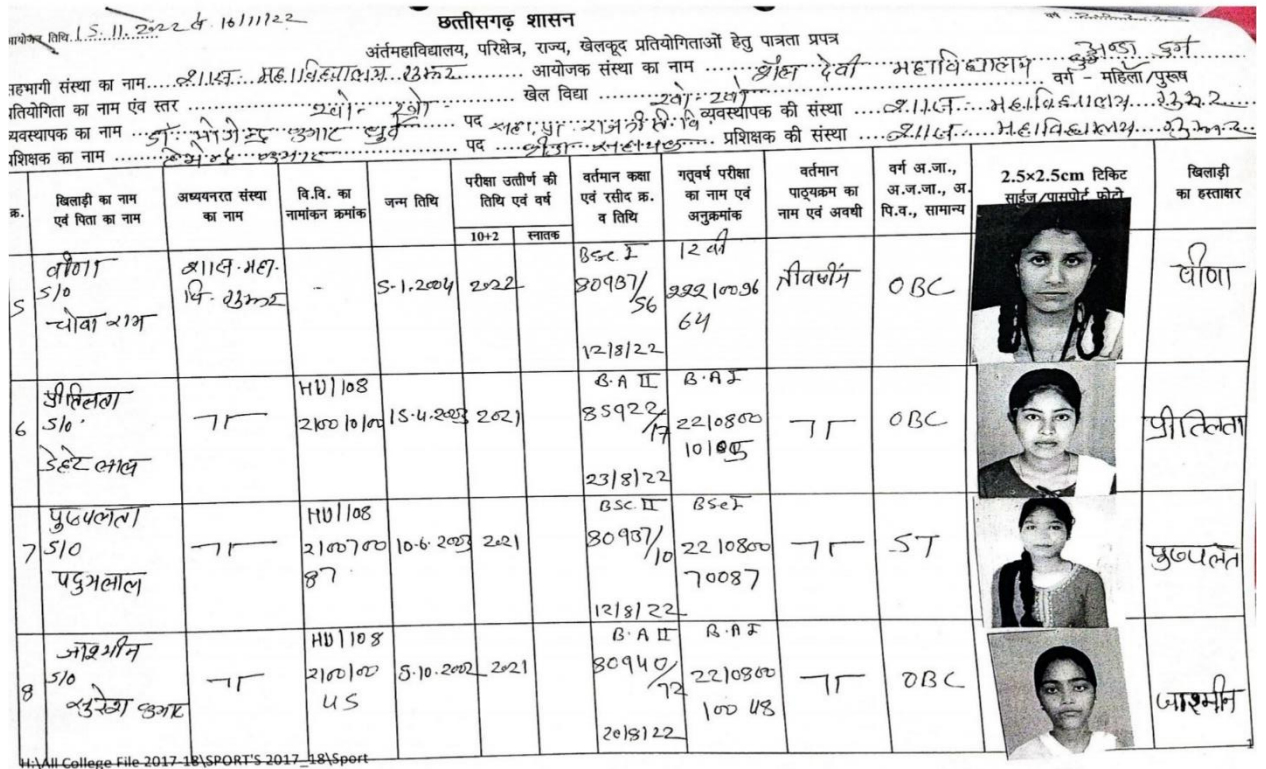 आयोजन तिथि 15.11.2022 से 16/11/22
छत्तीसगढ़ शासन
अंर्तमहाविद्यालय, परिक्षेत्र, राज्य, खेलकूद प्रतियोगिताओं हेतु पात्रता प्रपत्र
सहभागी संस्था का नाम शास. महाविद्यालय आयोजक संस्था का नाम देवी महाविद्यालय अण्डा दुर्ग
प्रतियोगिता का नाम एंव स्तर खो-खो खेल विद्या खो-खो वर्ग - महिला/पुरूष
व्यवस्थापक का नाम डॉ. कुमार धुर्वे पद व्यवस्थापक की संस्था शास. महाविद्यालय
प्रशिक्षक का नाम कुमार पद क्रीड़ा प्रशिक्षक की संस्था शास. महाविद्यालय
क्र. खिलाड़ी का नाम एवं पिता का नाम अध्ययनरत संस्था का नाम वि.वि. का नामांकन क्रमांक जन्म तिथि परीक्षा उत्तीर्ण की तिथि एवं वर्ष वर्तमान कक्षा एवं रसीद क्र. व तिथि गत्वर्ष परीक्षा का नाम एवं अनुक्रमांक वर्तमान पाठ्यक्रम का नाम एवं अवधी वर्ग अ.जा., अ.ज.जा., अ.पि.व., सामान्य 2.5×2.5cm टिकिट साईज/पासपोर्ट फोटो खिलाड़ी का हस्ताक्षर
10+2 स्नातक
5 वीणा S/O चोवा राम शास. महा. वि. - 5.1.2004 2022 BSc I 80937/56 12/8/22 12 वी 222100966 4 OBC वीणा
6 प्रीतिलता S/O लाल ㄱㄏ HU/108 210010100 15.4.2003 2021 B.A II 85922/17 23/8/22 B.A I 2210800 ㄱㄏ OBC प्रीतिलता
7 पुष्पलता S/O पदुमलाल ㄱㄏ HU/108 210070087 10.6.2003 2021 BSc. II 80937/10 12/8/22 BSc I 2210800 70087 ㄱㄏ ST पुष्पलता
8 जाश्मीन S/O सुरेश कुमार ㄱㄏ HU/108 2100100 45 5.10.2002 2021 B.A II 80940/72 20/8/22 B.A I 2210800 100 48 ㄱㄏ OBC जाश्मीन
H:\All College File 2017-18\SPORT'S 2017_18\Sport
1